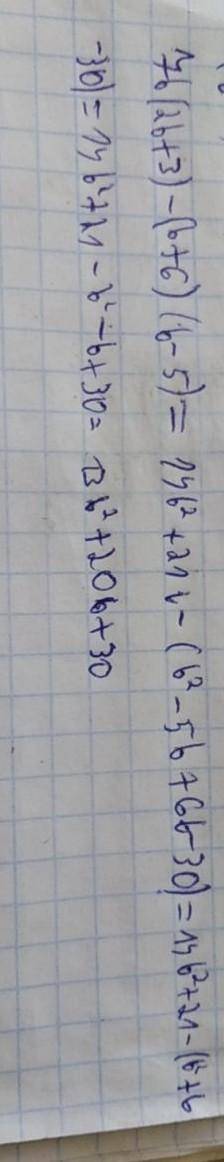 7b(2b+3)-(b+6)(b-5)= 14b²+21b-(b²-5b+6b-30)=14b²+21-(b²+b
-30)=14b²+21-b²-b+30= 13b²+20b+30